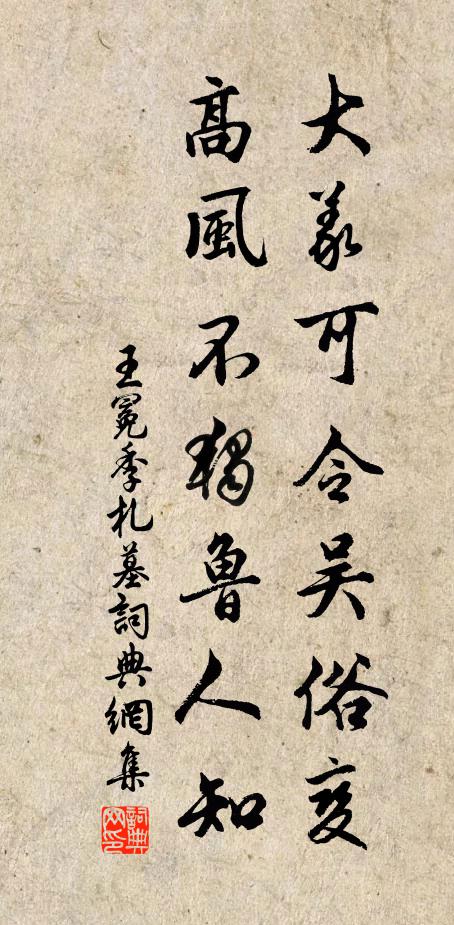 大義可令吴俗变
髙風不獨魯人知
王冕季札墓詞典網集
詞典网印